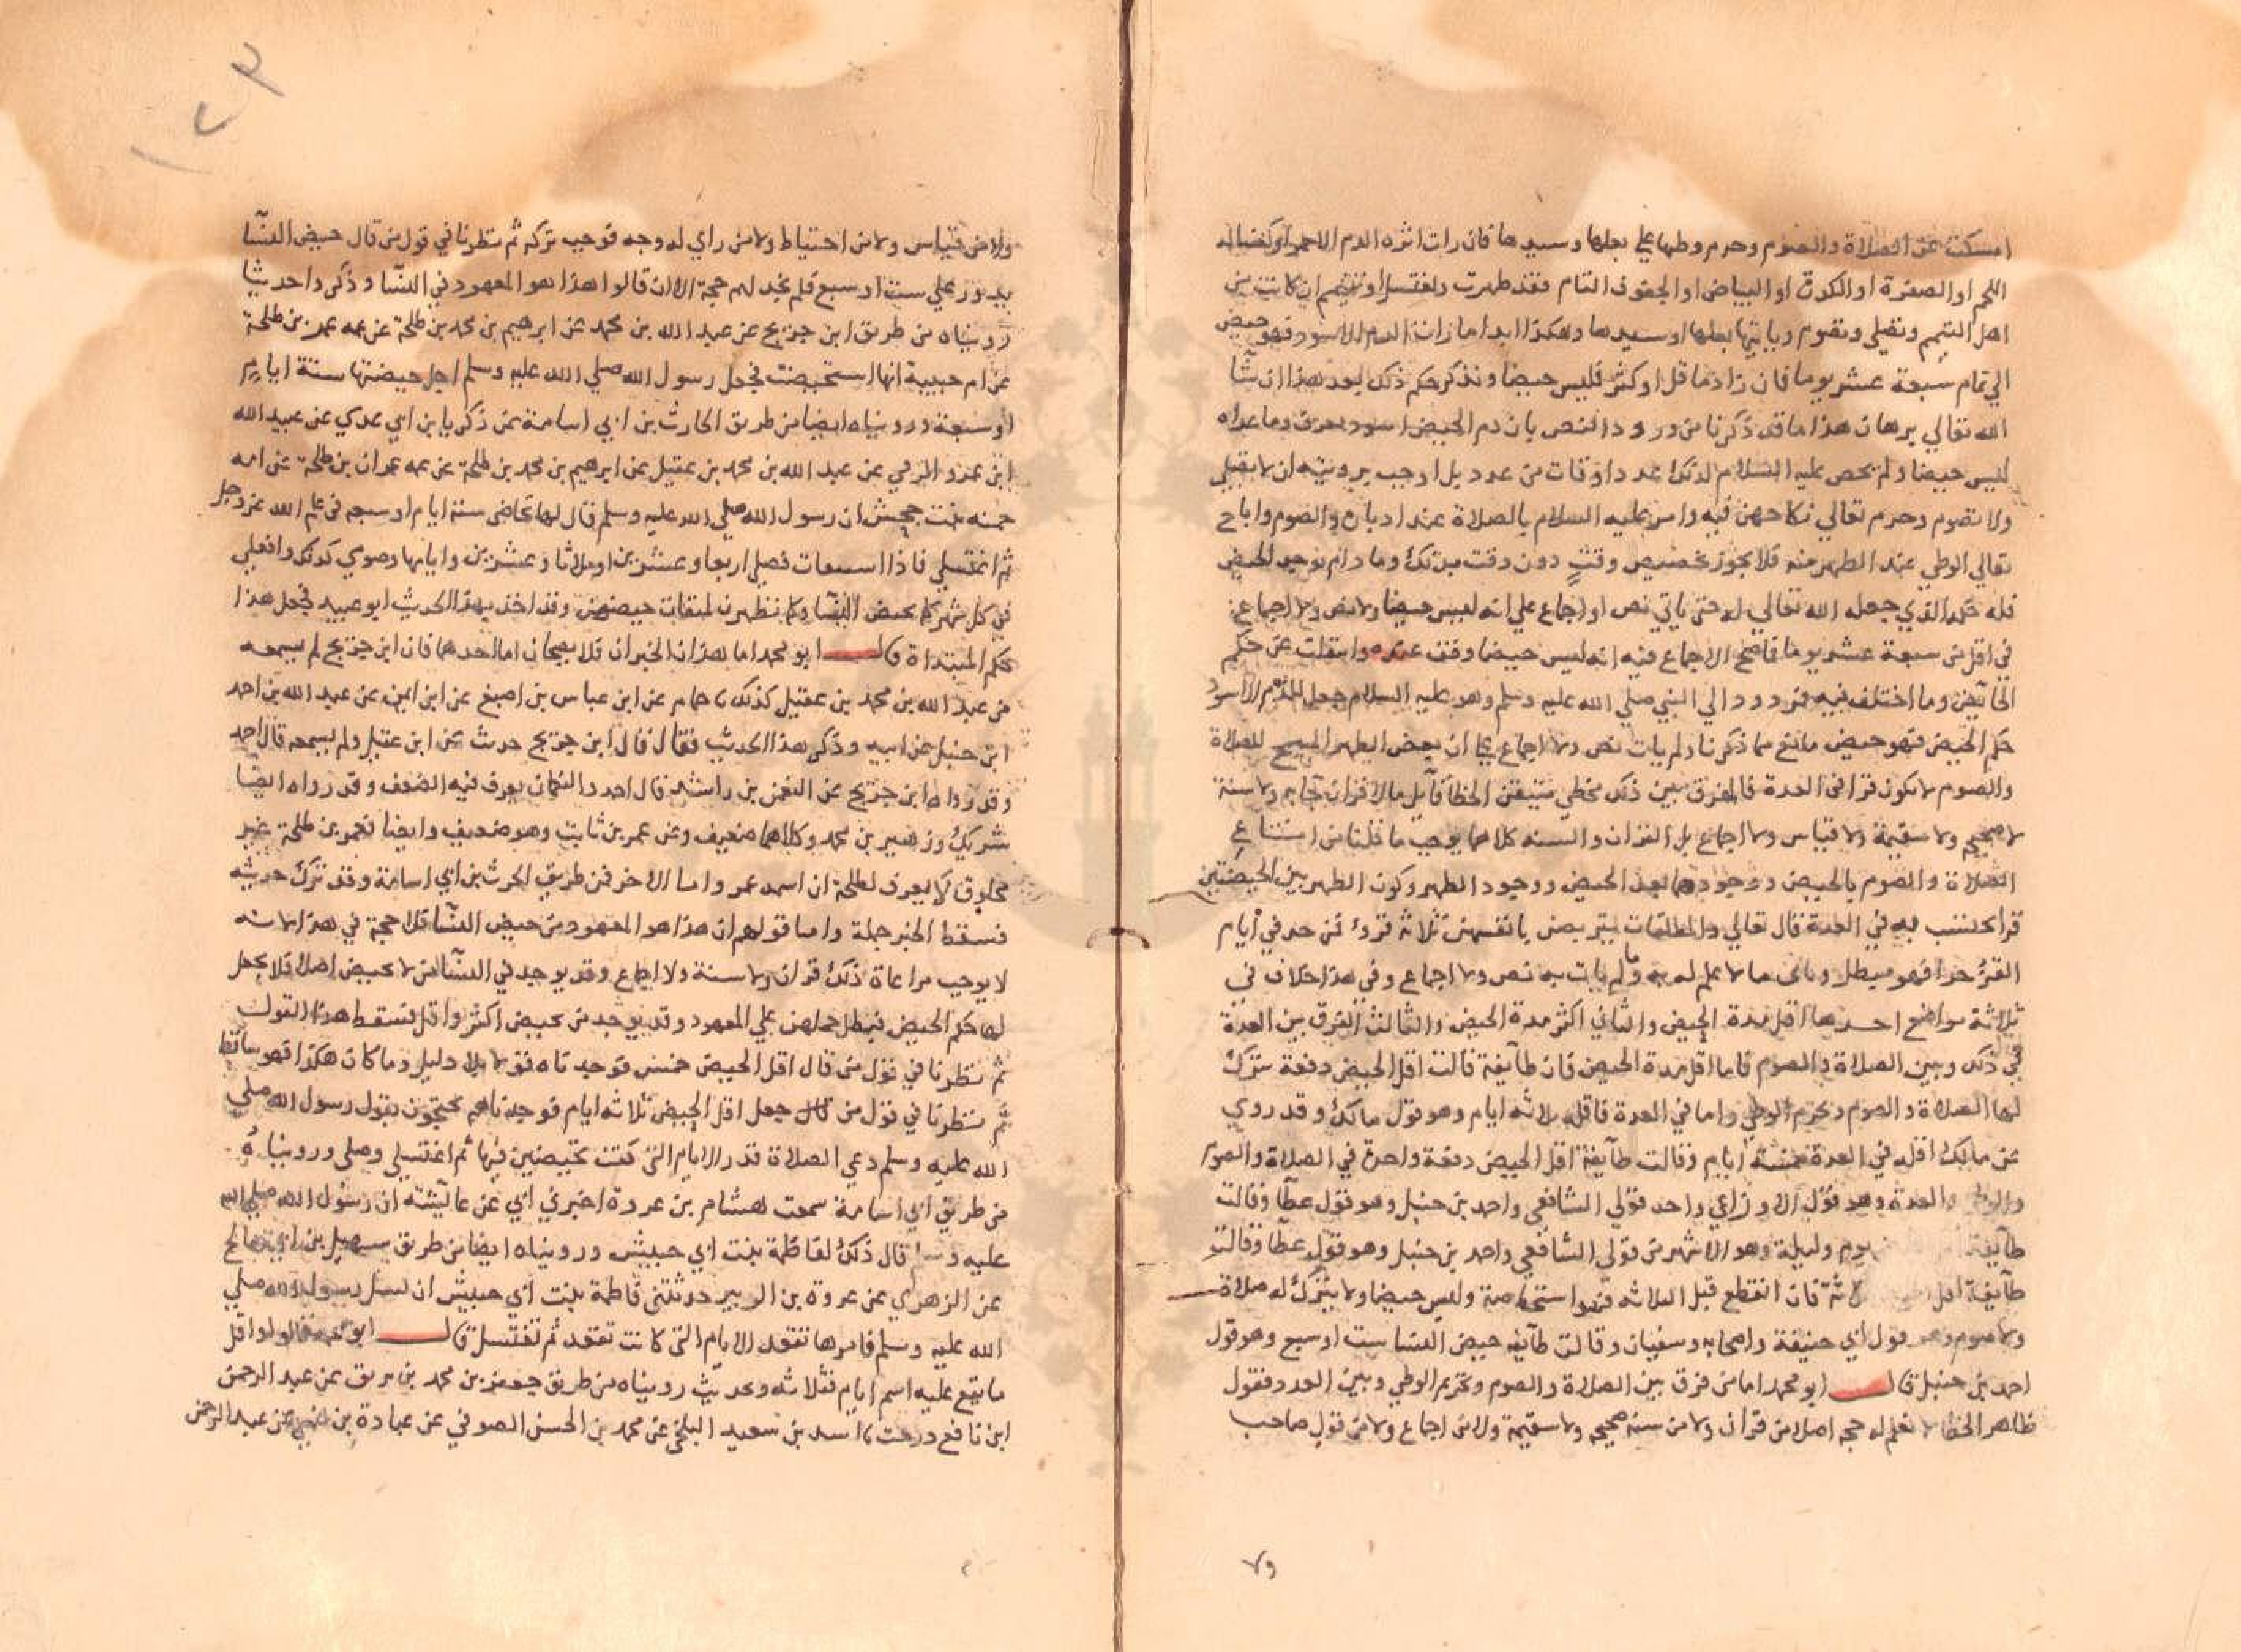 امسكت عن الصلاة والصوم وحرم وطيها علي بعلها وسيدها فان رات اثره الدم الاحمر او كغسالة
اللحم او الصفرة او الكدرة او البياض او الجفوف التام فقد طهرت وتغتسل او تتيمم ان كانت من
اهل التيمم وتصلي وتصوم وياتيها بعلها او سيدها وهكذا ابدا ما رات الدم الاسود فهو حيض
الي تمام سبعة عشر يوما فان زاد ما قل او كثر فليس حيضا ونذكر حكم ذلك بعد هذا ان شا
الله تعالي برهان هذا ما قد ذكرنا من ورود النص بان دم الحيض اسود يعرف وما عداه
ليس حيضا ولم يخص عليه السلام لذلك عدد اوقات من عدد بل اوجب برويته ان لا تصلي
ولا تصوم وحرم تعالي نكاحهن فيه وامر عليه السلام بالصلاة عند ادباره والصوم واباح
تعالي الوطي عند الطهر منه فلا يجوز تخصيص وقت دون وقت بذلك وما دام يوجد الحيض
فله حكمه الذي جعله الله تعالي له حتي ياتي نص او اجماع علي انه ليس حيضا ولا نص ولا اجماع
في اقل من سبعة عشر يوما فما صح الاجماع فيه انه ليس حيضا وقف عنده وانتقلت عن حكم
الحائض وما اختلف فيه فمردود الي النبي صلي الله عليه وسلم وهو عليه السلام جعل للدم الاسود
حكم الحيض فهو حيض مانع مما ذكرنا ولم يات نص ولا اجماع علي ان بعض الطهر المبيح للصلاة
والصوم لا يكون قرا في العدة فالمفرق بين ذلك مخطي متيقن الخطا قايل ما لا قران جا به ولا سنة
لا صحيحه ولا سقيمة ولا قياس ولا اجماع بل القران والسنه كلاهما يوجب ما قلنا من امتناع
الصلاة والصوم بالحيض ووجودهما بعدم الحيض ووجود الطهر وكون الطهر بين الحيضتين
قرا تحتسب به في العدة قال تعالي والمطلقات يتربصن بانفسهن ثلاثة قروء فمن حد في ايام
القرء حدا فهو مبطل وقايل ما لا علم له به وما لم يات به نص ولا اجماع وفي هذا خلاف في
ثلاثة مواضع احدها اقل مدة الحيض والثاني اكثر مدة الحيض والثالث الفرق بين العدة
في ذلك وبين الصلاة والصوم فاما اقل مدة الحيض فان طآيفة قالت اقل الحيض دفعة تترك
لها الصلاة والصوم وتحرم الوطي واما في العدة فاقله ثلاثه ايام وهو قول مالك وقد روي
عن مالك اقله في العدة خمسة ايام وقالت طآيفة اقل الحيض دفعة واحدة في الصلاة والصوم
والوطي والعدة وهو قول الاوزاعي واحد قولي الشافعي واحمد بن حنبل وهو قول عطآ وقالت
طآيفة يوم وليلة وهو الاشهر من قولي الشافعي واحمد بن حنبل وهو قول عطآ وقالت
طآيفة اقل ثلاثة فان انقطع قبل الثلاثه فهو استحاضة وليس حيضا ولا يترك له صلاة
ولا صوم وهو قول ابي حنيفة واصحابه وسفيان وقالت طآيفه حيض النسا ست او سبع وهو قول
احمد بن حنبل قال ابو محمد اما من فرق بين الصلاة والصوم وتحريم الوطي وبين العدد فقول
ظاهر الخطا لا نعلم له حجه اصلا من قران ولا من سنة صحيحه ولا سقيمة ولا من اجماع ولا من قول صاحب
٧٩
١٢٣
ولا من قياس ولا من احتياط ولا من راي له وجه فوجب تركه ثم نظرنا في قول من قال حيض النسآ
يدور علي ست او سبع فلم نجد لهم حجة الا ان قالوا هذا هو المعهود في النسآ وذكروا حديثا
رويناه من طريق ابن جريج عن عبد الله بن محمد عن ابرهيم بن محمد بن طلحة عن عمه عمر بن طلحة
عن ام حبيبة انها استحيضت فجعل رسول الله صلي الله عليه وسلم اجل حيضتها ستة ايام
او سبعة ورويناه ايضا من طريق الحارث بن ابي اسامة عن زكريا بن ابي عدي عن عبيد الله
ابن عمرو الرقي عن عبد الله بن محمد بن عقيل عن ابرهيم بن محمد بن طلحة عن عمه عمران بن طلحة عن امه
حمنه بنت جحش ان رسول الله صلي الله عليه وسلم قال لها تحاضي ستة ايام او سبعه في علم الله عز وجل
ثم اغتسلي فاذا استنقات فصلي اربعا وعشرين او ثلاثا وعشرين وايامها وصومي كذلك وافعلي
في كل شهر كما تحيض النسا وكما تطهرن لميقات حيضهن وقد اخذ بهذا الحديث ابو عبيد فجعل هذا
حكم المبتداة قال ابو محمد اما هذان الخبران فلا يصحان اما احدهما فان ابن جريج لم يسمعه
من عبد الله بن محمد بن عقيل كذلك ثنا حمام عن ابن عباس بن اصبغ عن ابن ايمن عن عبد الله بن احمد
ابن حنبل عن ابيه وذكر هذا الحديث فقال قال ابن جريج حدثت عن ابن عقيل ولم يسمعه قال احمد
وقد رواه ابن جريج عن النعمن بن راشد قال احمد والنعمان يعرف فيه الضعف وقد رواه ايضا
شريك وزهير بن محمد وكلاهما ضعيف وعن عمر بن ثابت وهو ضعيف وايضا فعمر بن طلحة غير
مخلوق لا يعرف لطلحة ابن اسمه عمر واما الاخر فمن طريق الحرث بن ابي اسامة وقد ترك حديثه
فسقط الخبر جملة واما قولهم ان هذا هو المعهود من حيض النسآ فلا حجة في هذا لانه
لا يوجب مراعاة ذلك قران ولا سنة ولا اجماع وقد يوجد في النسآ من لا تحيض اصلا فلا يجعل
لها حكم الحيض فبطل حملهن علي المعهود وقد يوجد من تحيض اكثر واقل فسقط هذا القول
ثم نظرنا في قول من قال اقل الحيض خمس فوجدناه قولا بلا دليل وما كان هكذا فهو ساقط
ثم نظرنا في قول من قال جعل اقل الحيض ثلاثه ايام فوجدناهم يحتجون بقول رسول الله صلي
الله عليه وسلم دعي الصلاة قدر الايام التي كنت تحيضين فيها ثم اغتسلي وصلي ورويناه
من طريق ابي اسامة سمعت هشام بن عروة اخبرني ابي عن عايشة ان رسول الله صلي الله
عليه وسلم قال ذلك لفاطمة بنت ابي حبيش ورويناه ايضا من طريق سهيل بن ابي صالح
عن الزهري عن عروة بن الزبير حدثتني فاطمة بنت ابي حبيش ان تسل رسول الله صلي
الله عليه وسلم فامرها تقعد الايام التي كانت تقعد ثم تغتسل قال ابو محمد قالوا واقل
ما يقع عليه اسم ايام فثلاثه وحديث رويناه من طريق جعفر بن محمد بن بريق عن عبد الرحمن
ابن نافع درخت ثنا اسد بن سعيد البلخي عن محمد بن الحسن الصوفي عن عبادة بن نسي عن عبد الرحمن